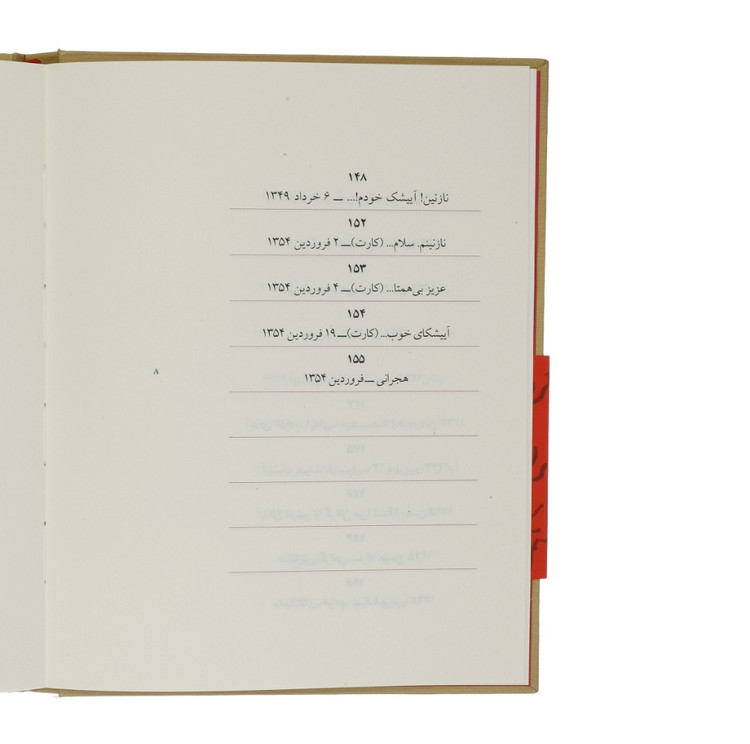 ۱۴۸
نازنین! آییشک خودم!... ــ ۶ خرداد ۱۳۴۹
۱۵۲
نازنینم. سلام... (کارت)ــ ۲ فروردین ۱۳۵۴
۱۵۳
عزیز بی‌همتا... (کارت)ــ ۴ فروردین ۱۳۵۴
۱۵۴
آییشکای خوب... (کارت)ــ ۱۹ فروردین ۱۳۵۴
۱۵۵
هجرانی ــ فروردین ۱۳۵۴
۸